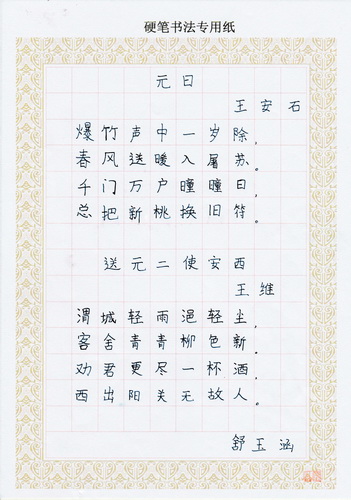 硬笔书法专用纸
元日
王安石
爆竹声中一岁除，
春风送暖入屠苏。
千门万户曈曈日，
总把新桃换旧符。
送元二使安西
王维
渭城轻雨浥轻尘，
客舍青青柳色新。
劝君更尽一杯酒，
西出阳关无故人。
舒玉涵